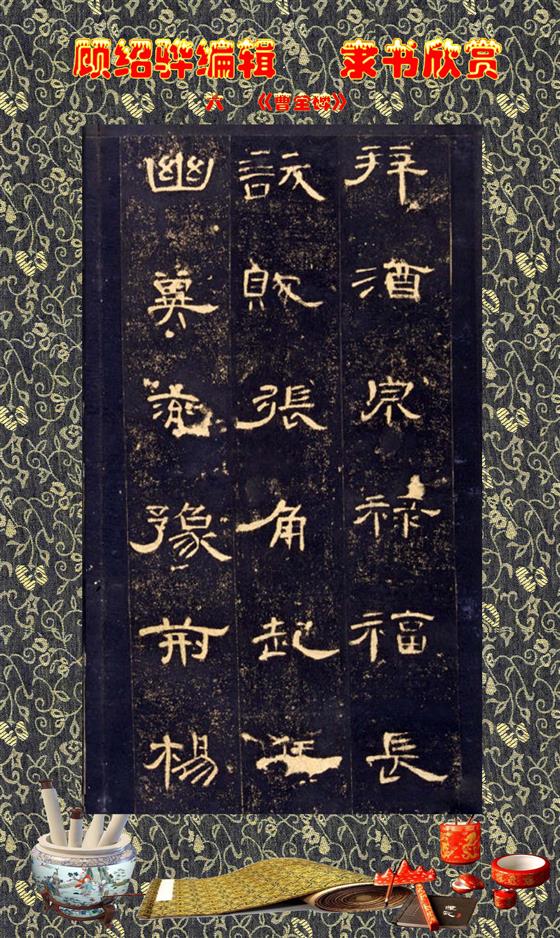 顾绍骅编辑 隶书欣赏
六 《曹全碑》
拜酒泉祿福長
訞賊張角起兵
幽冀兗豫荊楊